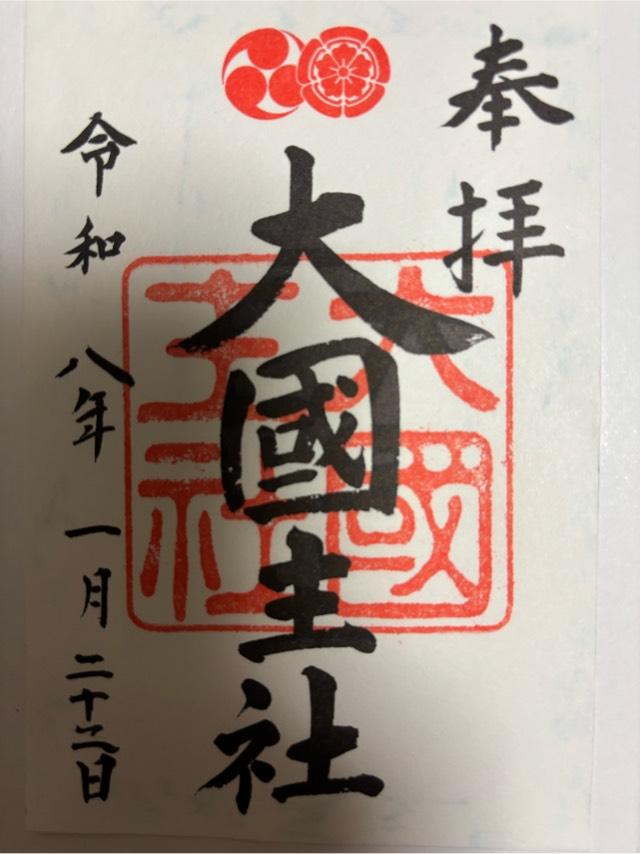 奉拝
大國主社
大國主社
令和八年一月二十二日